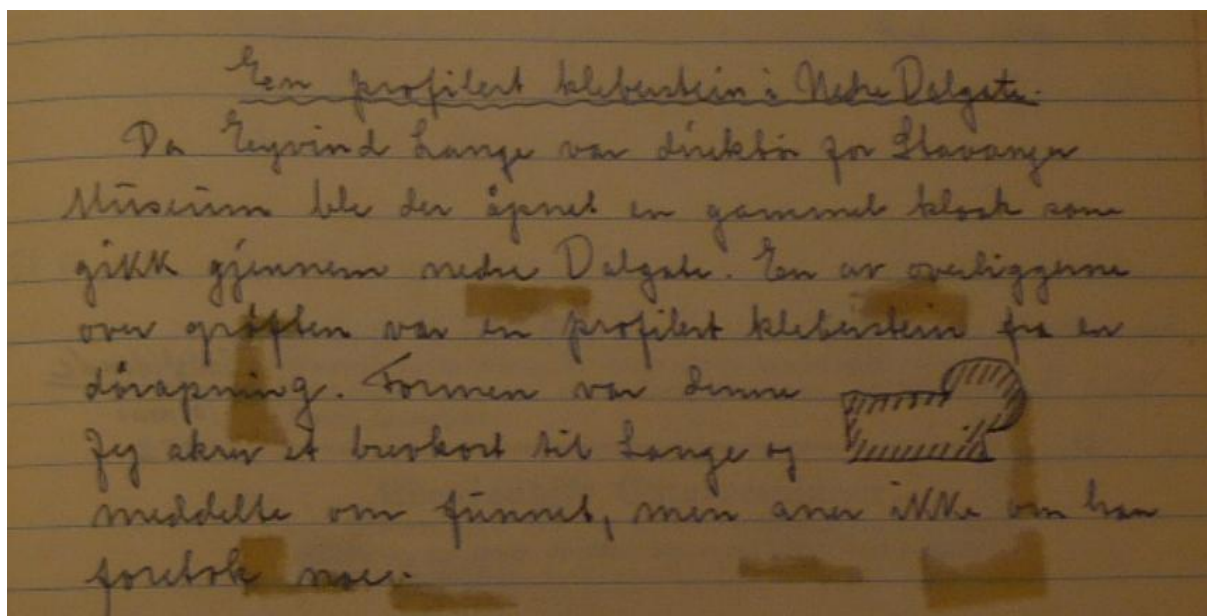 En profilert kleberstein i Nedre Dalgate.
Da Eyvind Lange var direktör for Stavanger
Museum ble der åpnet en gammel kloak some
gikk gjennem nedre Dalgate. En av overliggerne
over gröften var en profilert kleberstein fra en
döråpning. Formen var denne
Jeg skrev et brevkort til Lange og
meddelte om funnet, men aner ikke om han
foretok noe.